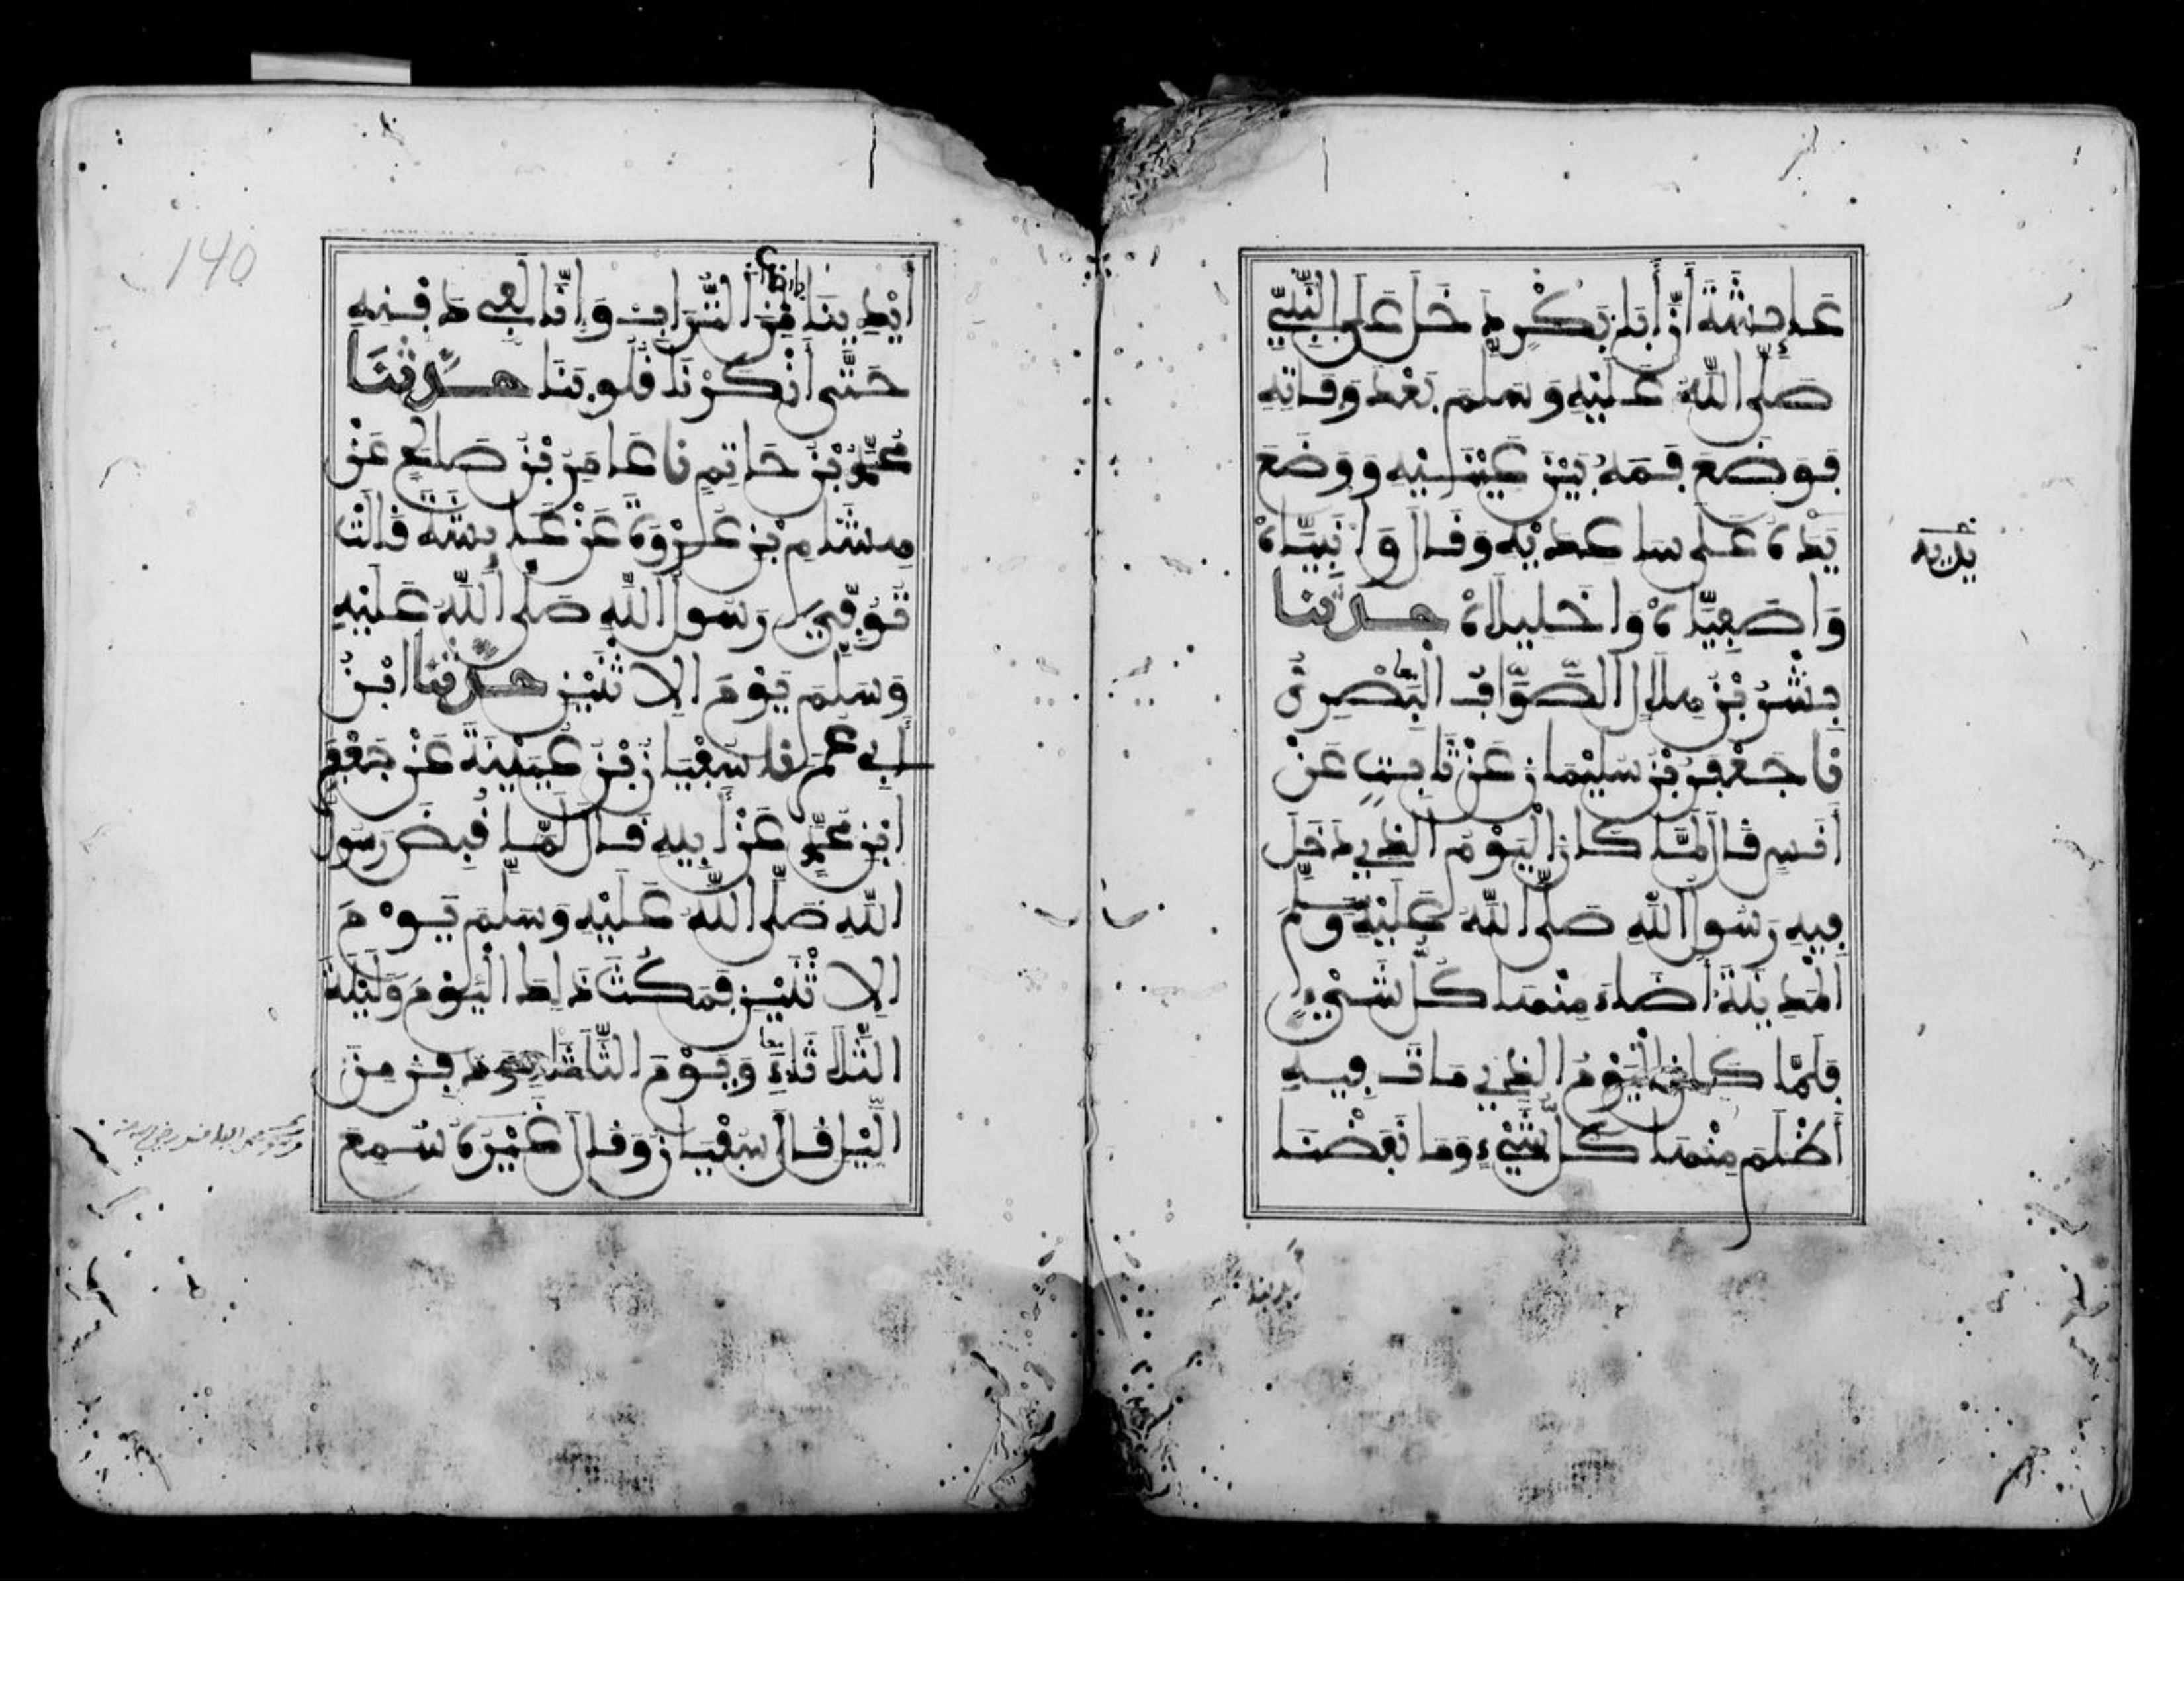 عَايِشَةَ أَنَّ أَبَا بَكْرٍ دَخَلَ عَلَى النَّبِيِّ
صَلَّى اللَّهُ عَلَيْهِ وَسَلَّمَ بَعْدَ وَفَاتِهِ
فَوَضَعَ فَمَهُ بَيْنَ عَيْنَيْهِ وَوَضَعَ
يَدَهُ عَلَى سَاعِدَيْهِ وَقَالَ وَا نَبِيَّاهْ
يديه
وَاصَفِيَّاهْ وَاخَلِيلَاهْ حَدَّثَنَا
بِشْرُ بْنُ هِلَالٍ الصَّوَّافُ الْبَصْرِيُّ
نا جَعْفَرُ بْنُ سُلَيْمَانَ عَنْ ثَابِتٍ عَنْ
أَنَسٍ قَالَ لَمَّا كَانَ الْيَوْمُ الَّذِي دَخَلَ
فِيهِ رَسُولُ اللَّهِ صَلَّى اللَّهُ عَلَيْهِ وَسَلَّمَ
الْمَدِينَةَ أَضَاءَ مِنْهَا كُلُّ شَيْءٍ
فَلَمَّا كَانَ الْيَوْمُ الَّذِي مَاتَ فِيهِ
أَظْلَمَ مِنْهَا كُلُّ شَيْءٍ وَمَا نَفَضْنَا
140
أَيْدِيَنَا مِنَ التُّرَابِ وَإِنَّا لَفِي دَفْنِهِ
حَتَّى أَنْكَرْنَا قُلُوبَنَا حَدَّثَنَا
مُحَمَّدُ بْنُ حَاتِمٍ نا عَامِرُ بْنُ صَالِحٍ عَنْ
هِشَامِ بْنِ عُرْوَةَ عَنْ عَايِشَةَ قَالَتْ
تُوُفِّيَ رَسُولُ اللَّهِ صَلَّى اللَّهُ عَلَيْهِ
وَسَلَّمَ يَوْمَ الِاثْنَيْنِ حَدَّثَنَا ابْنُ
أَبِي عُمَرَ نا سُفْيَانُ بْنُ عُيَيْنَةَ عَنْ جَعْفَرِ
ابْنِ مُحَمَّدٍ عَنْ أَبِيهِ قَالَ لَمَّا قُبِضَ رَسُولُ
اللَّهِ صَلَّى اللَّهُ عَلَيْهِ وَسَلَّمَ يَوْمَ
الِاثْنَيْنِ فَمَكَثَ ذَلِكَ الْيَوْمَ وَلَيْلَةَ
الثُّلَاثَاءِ وَيَوْمَ الثُّلَاثَاءِ دُفِنَ مِنَ
اللَّيْلِ قَالَ سُفْيَانُ وَقَالَ غَيْرُهُ سُمِعَ